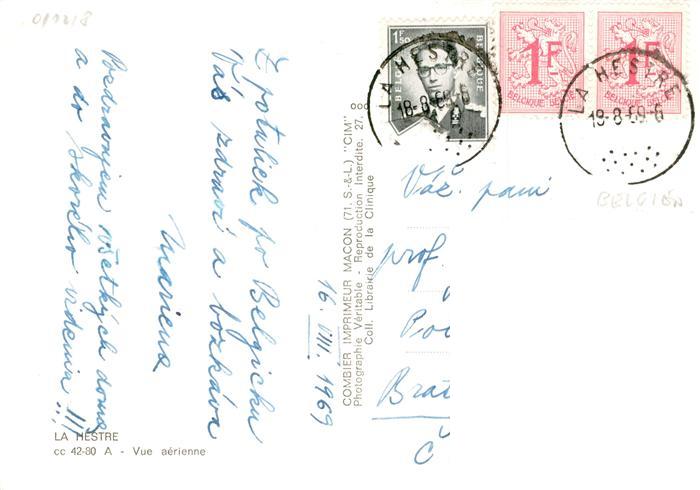 011218
Z potuliek po Belgicku
Vás zdraví a bozkáva
Mariena
Pozdravujem všetkých doma
a do skorého videnia !!!
16. VIII. 1969
LA HESTRE
cc 42-80 A - Vue aérienne
COMBIER IMPRIMEUR MACON (71. S.-&-L.) "CIM"
Photographie Véritable - Reproduction Interdite. 27.
Coll. Librairie de la Clinique
1F50
BELGIE BELGIQUE
1F
BELGIQUE BELGIË
1F
BELGIQUE BELGIË
LA HESTRE
18-8-69-6
LA HESTRE
18-8-69-6
BELGIËN
Váž. pani
prof.
Brat
Č